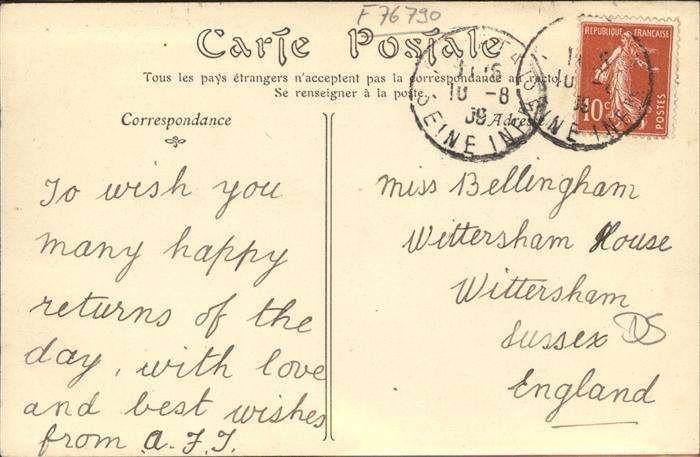 F 76790
Carte Postale
Tous les pays étrangers n'acceptent pas la correspondance au recto.
Se renseigner à la poste.
RÉPUBLIQUE FRANÇAISE
10c
POSTES
10 -8
09
SEINE INF
SEINE INF
Correspondance
Adresse
To wish you
many happy
returns of the
day, with love
and best wishes
from A.F.T.
Miss Bellingham
Wittersham House
Wittersham
Sussex
England